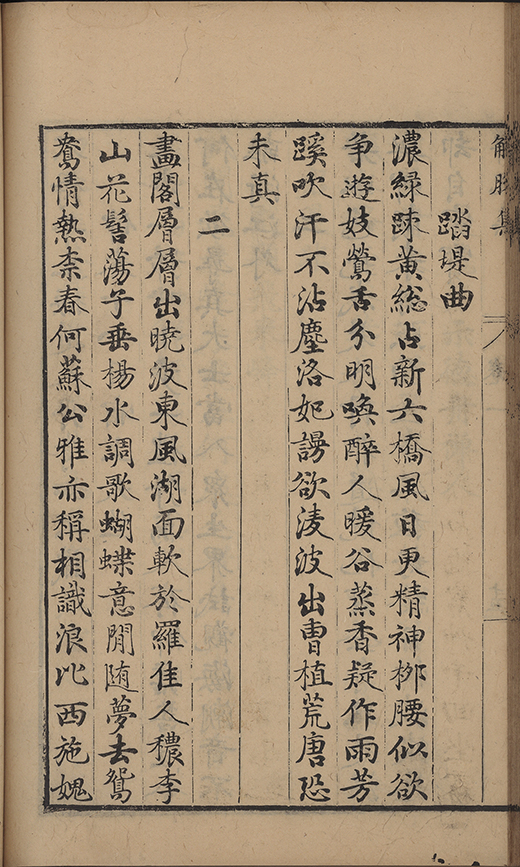 解脫集
卷一
踏堤曲
濃綠踈黃総占新六橋風日更精神桞腰似欲
争遊妓鶯舌分明喚醉人暖谷蒸香疑作雨芳
蹊吹汗不沾塵洛妃謾欲淩波出曹植荒唐恐
未真
二
畵閣層層出曉波東風湖面軟於羅佳人穠李
山花髻蕩子垂楊水調歌蝴蝶意閒随夢去鴛
鴦情熱柰春何蘇公雅亦稱相識浪比西施媿